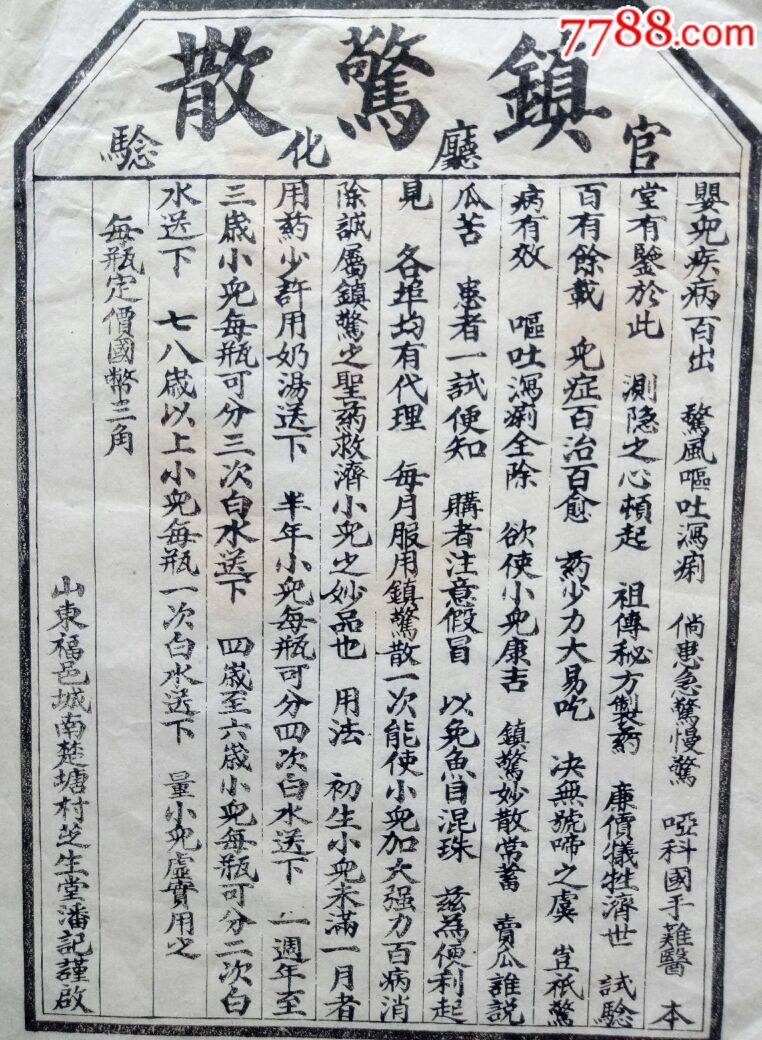 7788.com
鎮驚散
官廳化驗
嬰兒疾病百出　驚風嘔吐瀉痢　倘患急驚慢驚　啞科國手難醫　本
堂有鑒於此　測隐之心頓起　祖傳秘方製药　廉價犧牲濟世　試驗
百有餘載　兒症百治百愈　葯少力大易吃　决無號啼之虞　豈祇驚
病有效　嘔吐瀉痢全除　欲使小兒康吉　鎮驚妙散常蓄　賣瓜誰説
瓜苦　患者一試便知　購者注意假冒　以免魚目混珠　兹為便利起
見　各埠均有代理　每月服用鎮驚散一次能使小兒加大强力百病消
除誠屬鎮驚之聖葯救濟小兒之妙品也　用法　初生小兒未滿一月者
用葯少許用奶湯送下　半年小兒每瓶可分四次白水送下　一週年至
三歲小兒每瓶可分三次白水送下　四歲至六歲小兒每瓶可分二次白
水送下　七八歲以上小兒每瓶一次白水送下　量小兒虛實用之
每瓶定價國幣三角
山東福邑城南楚塘村芝生堂潘記謹啟